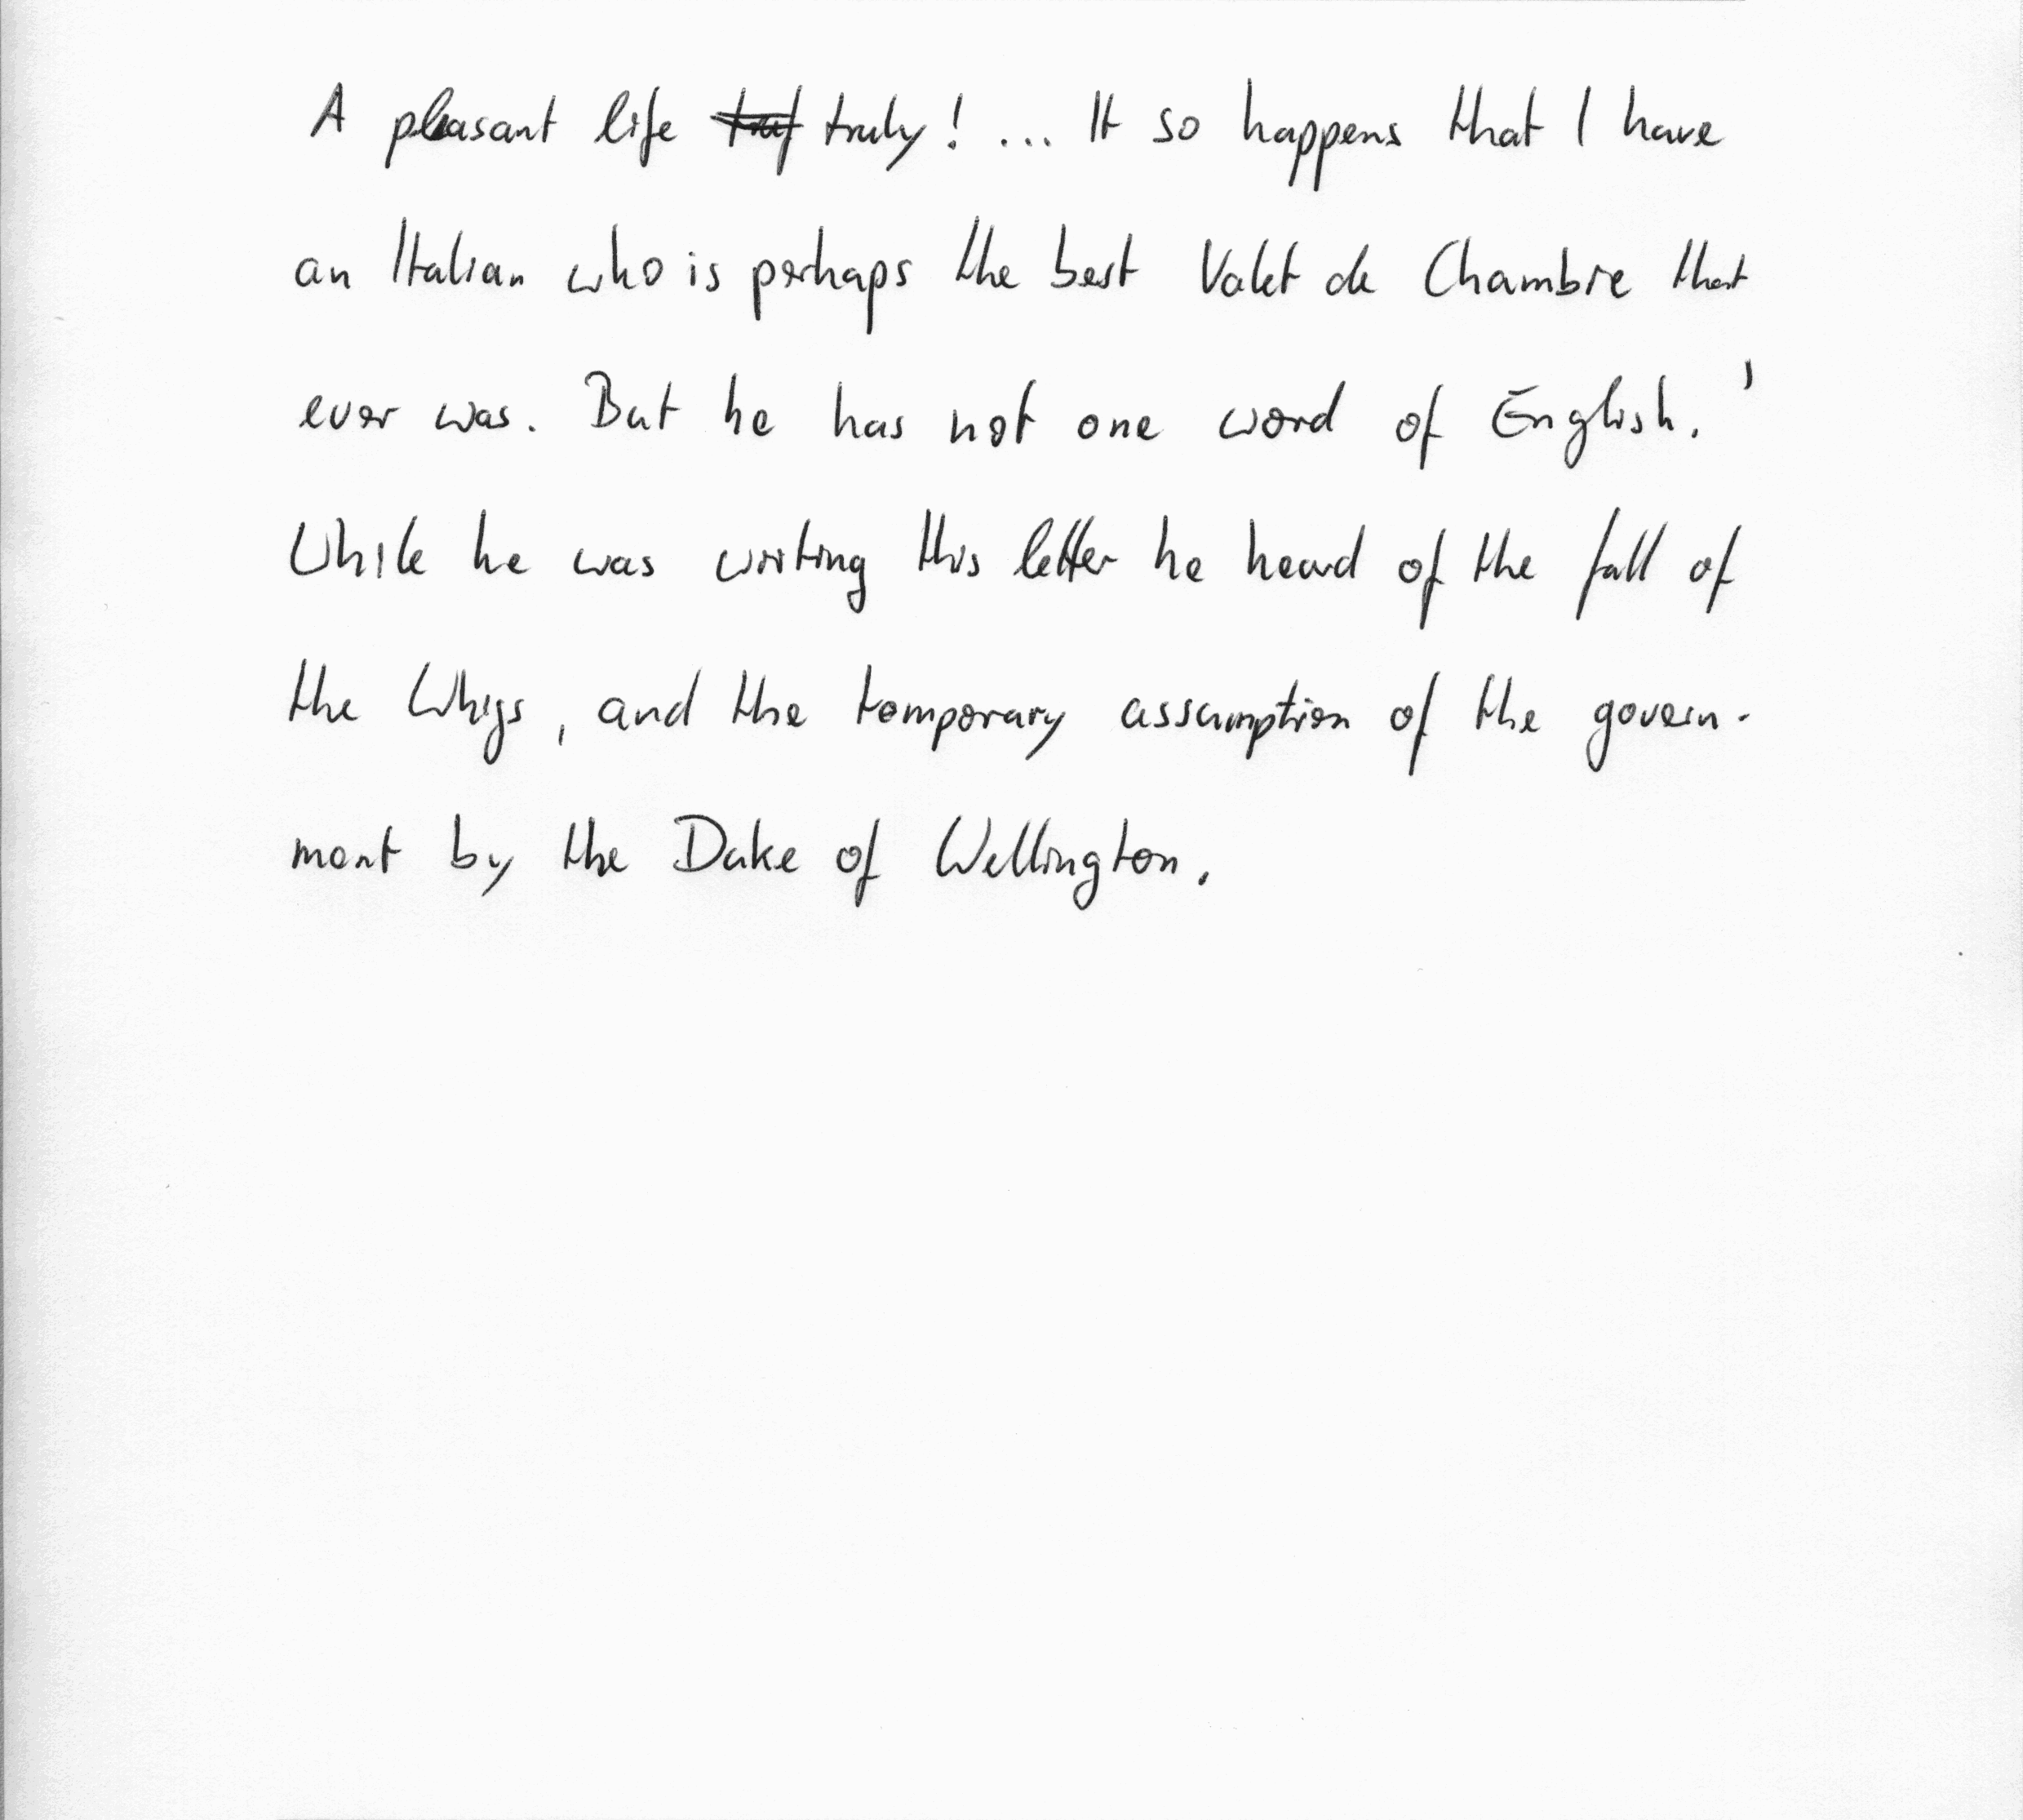 A pleasant life truly! ... It so happens that I have
an Italian who is perhaps the best Valet de Chambre that
ever was. But he has not one word of English.'
While he was writing this letter he heard of the fall of
the Whigs, and the temporary assumption of the govern-
ment by the Duke of Wellington.